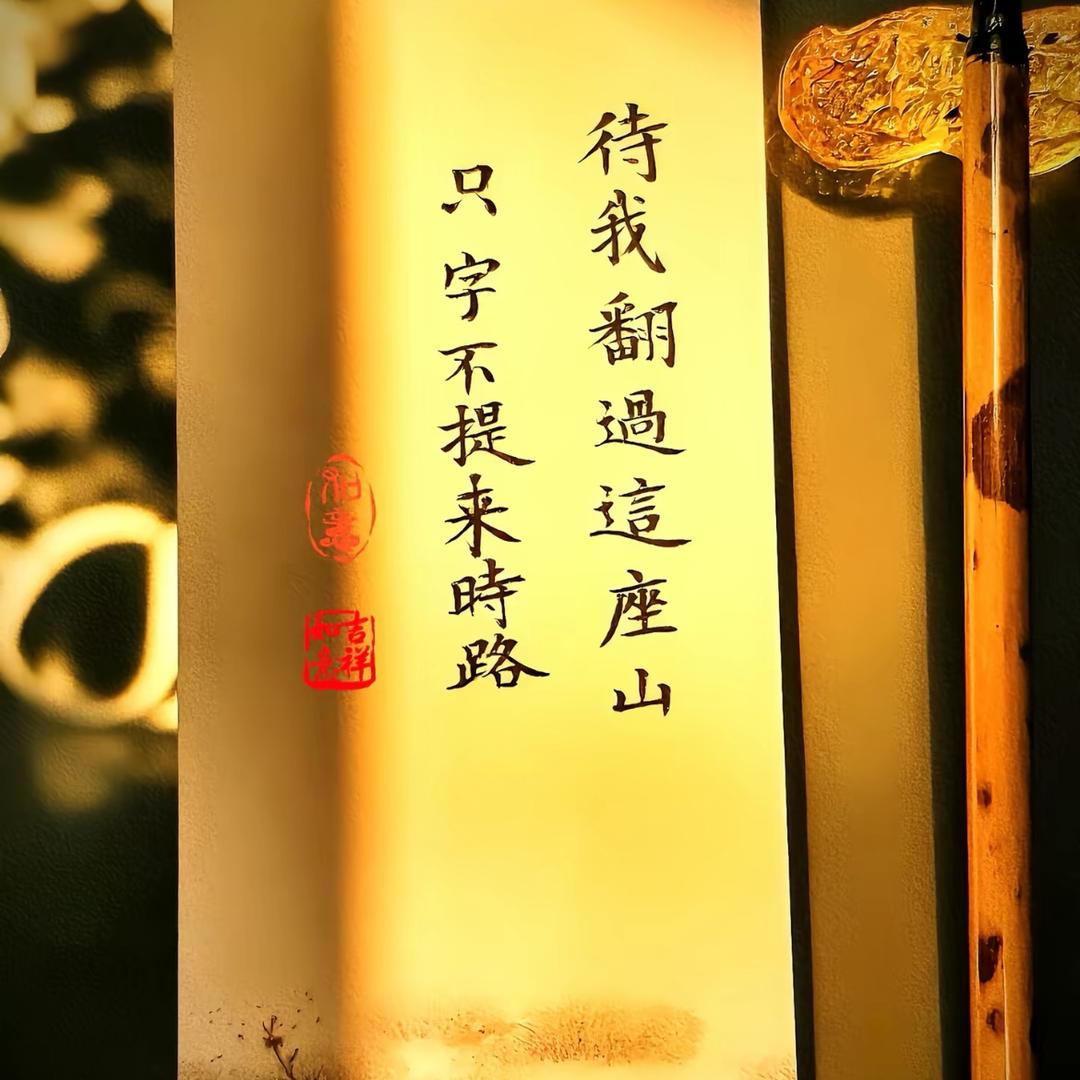 待我翻過這座山
只字不提来時路
吉祥如意